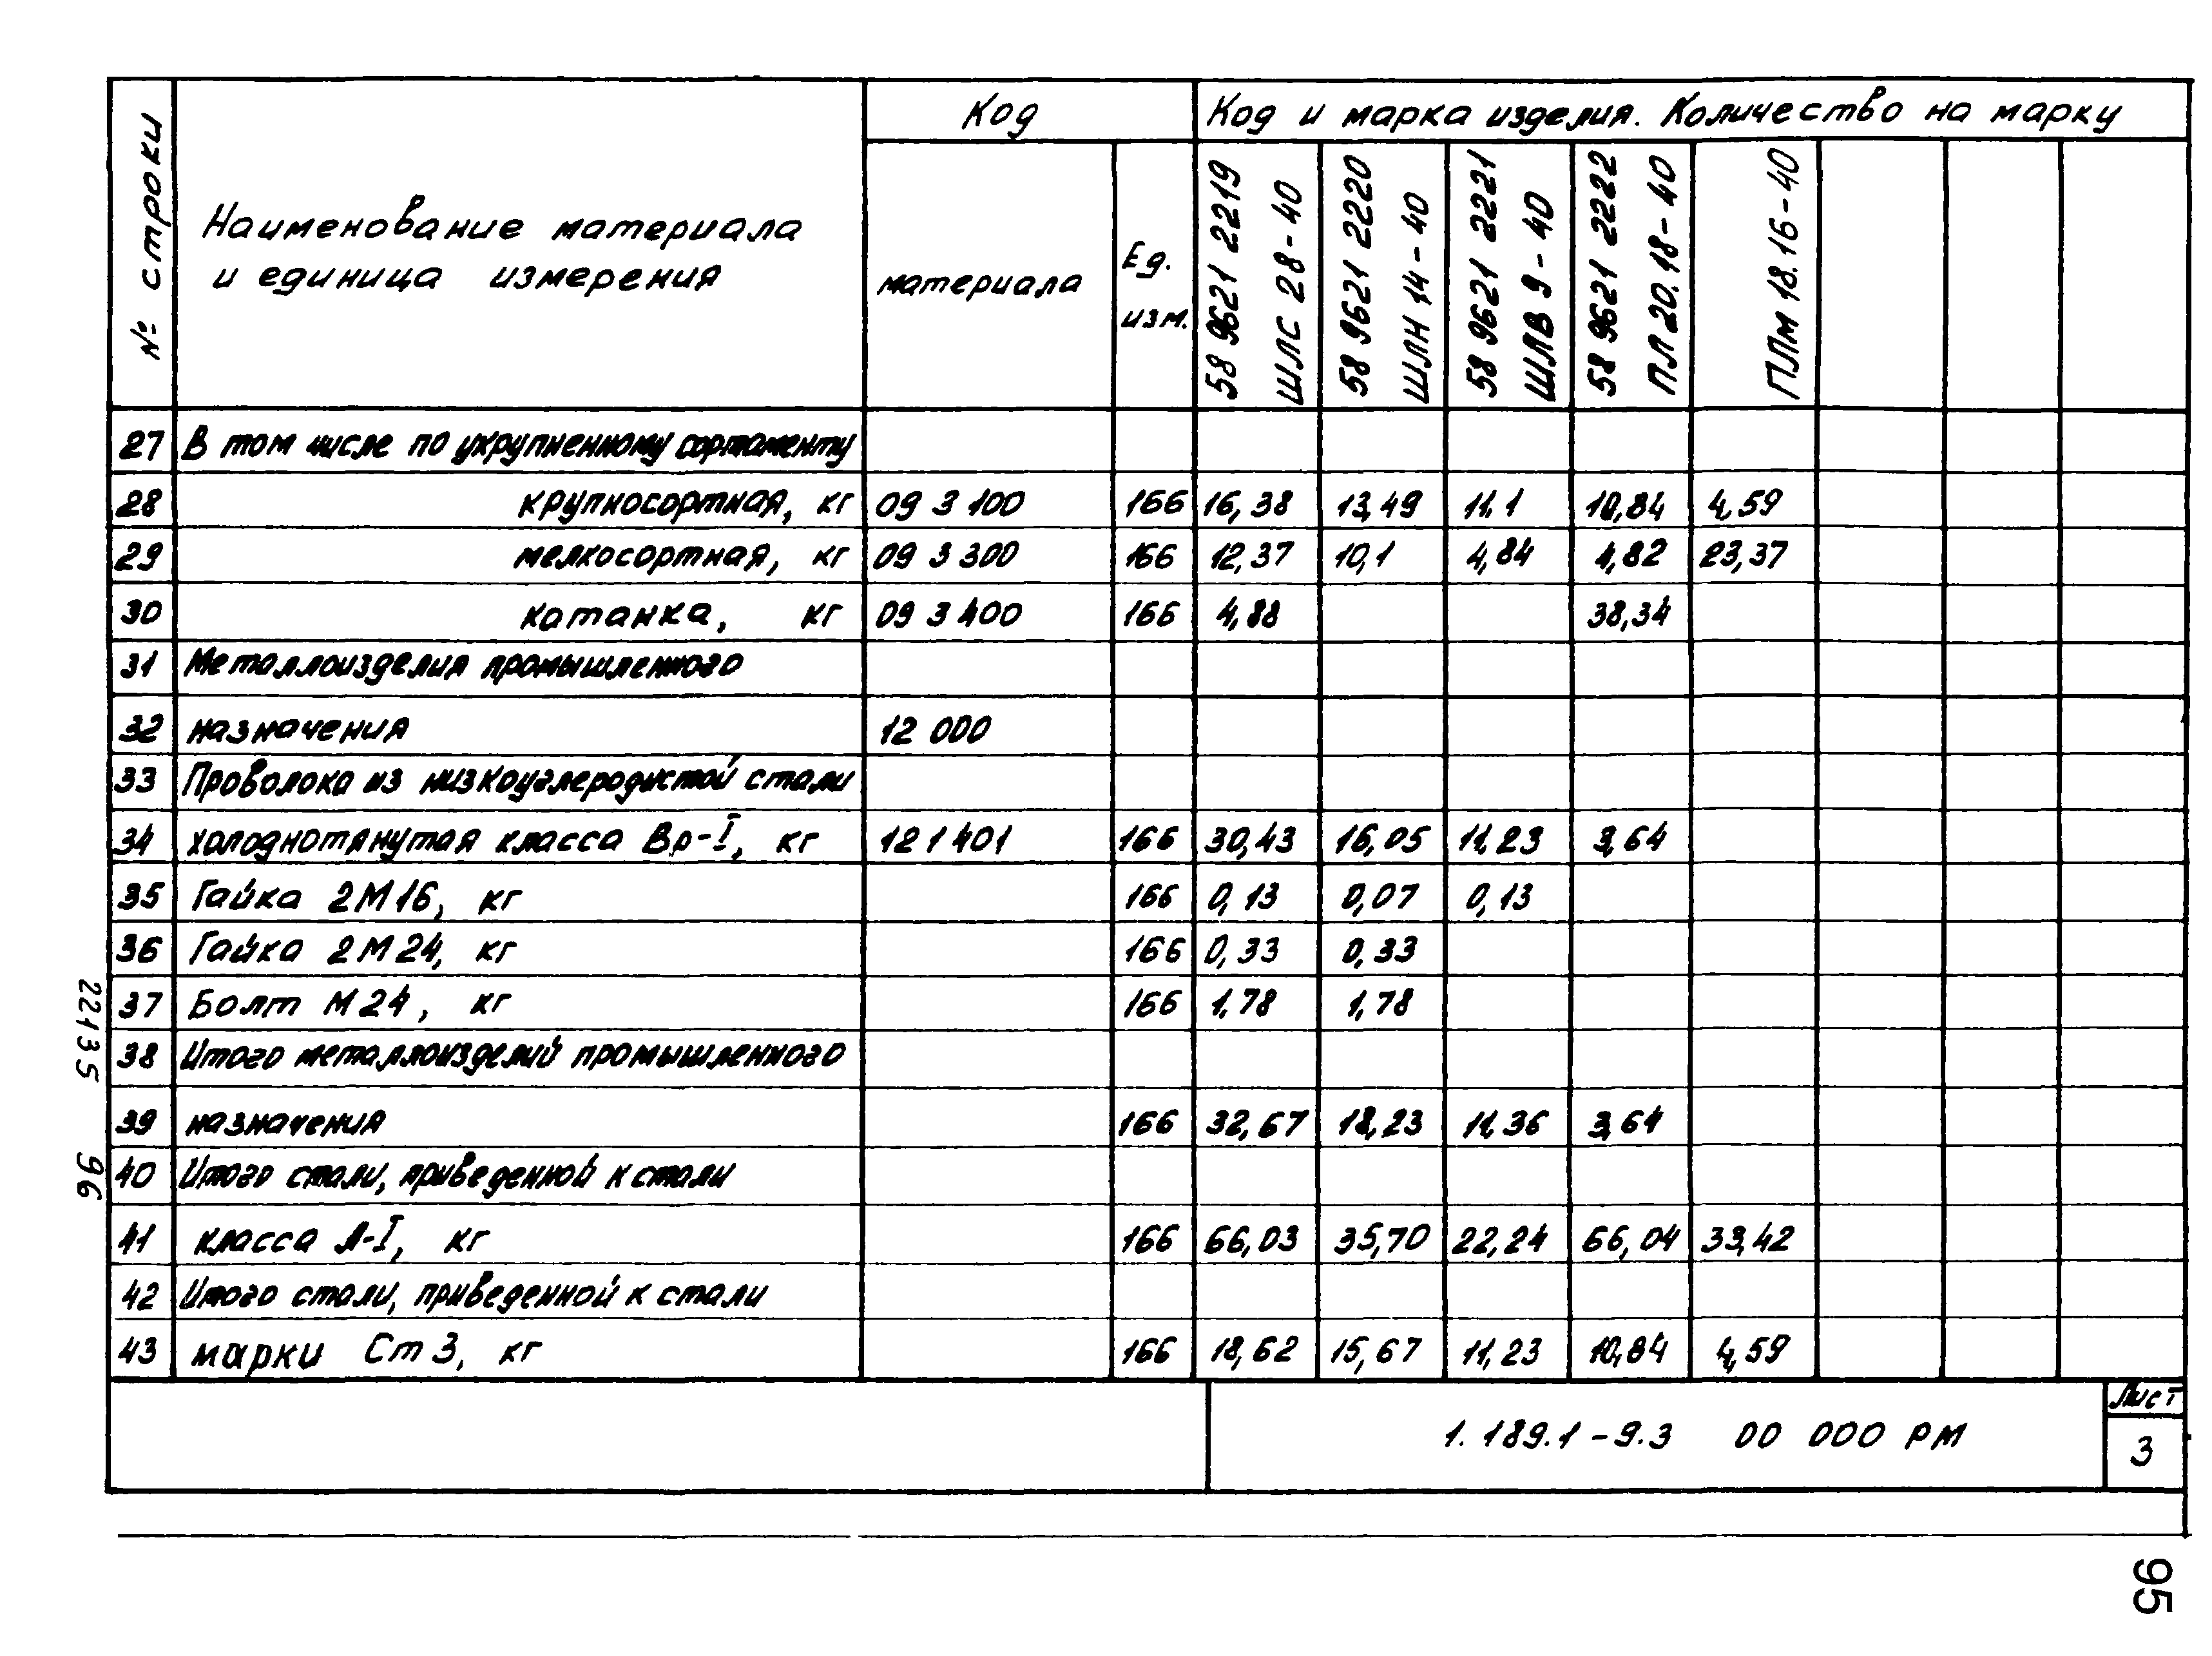 № строки
Наименование материала
и единица измерения
Код
материала
Ед.
изм.
Код и марка изделия. Количество на марку
58 9621 2219
ШЛС 28-40
58 9621 2220
ШЛН 14-40
58 9621 2221
ШЛВ 9-40
58 9621 2222
ПЛ 20.18-40
ПЛм 18.16-40
27 В том числе по укрупненному сортаменту
28 крупносортная, кг 09 3 100 166 16,38 13,49 11,1 10,84 4,59
29 мелкосортная, кг 09 3 300 166 12,37 10,1 4,84 4,82 23,37
30 катанка, кг 09 3 400 166 4,88 38,34
31 Металлоизделия промышленного
32 назначения 12 000
33 Проволока из низкоуглеродистой стали
34 холоднотянутая класса Вр-I, кг 12 1 401 166 30,43 16,05 11,23 3,64
35 Гайка 2М16, кг 166 0,13 0,07 0,13
36 Гайка 2М24, кг 166 0,33 0,33
37 Болт М24, кг 166 1,78 1,78
38 Итого металлоизделий промышленного
39 назначения 166 32,67 18,23 11,36 3,64
40 Итого стали, приведенной к стали
41 класса А-I, кг 166 66,03 35,70 22,24 66,04 33,42
42 Итого стали, приведенной к стали
43 марки Ст3, кг 166 18,62 15,67 11,23 10,84 4,59
22135 96
1.189.1-9.3 00 000 РМ
Лист
3
95